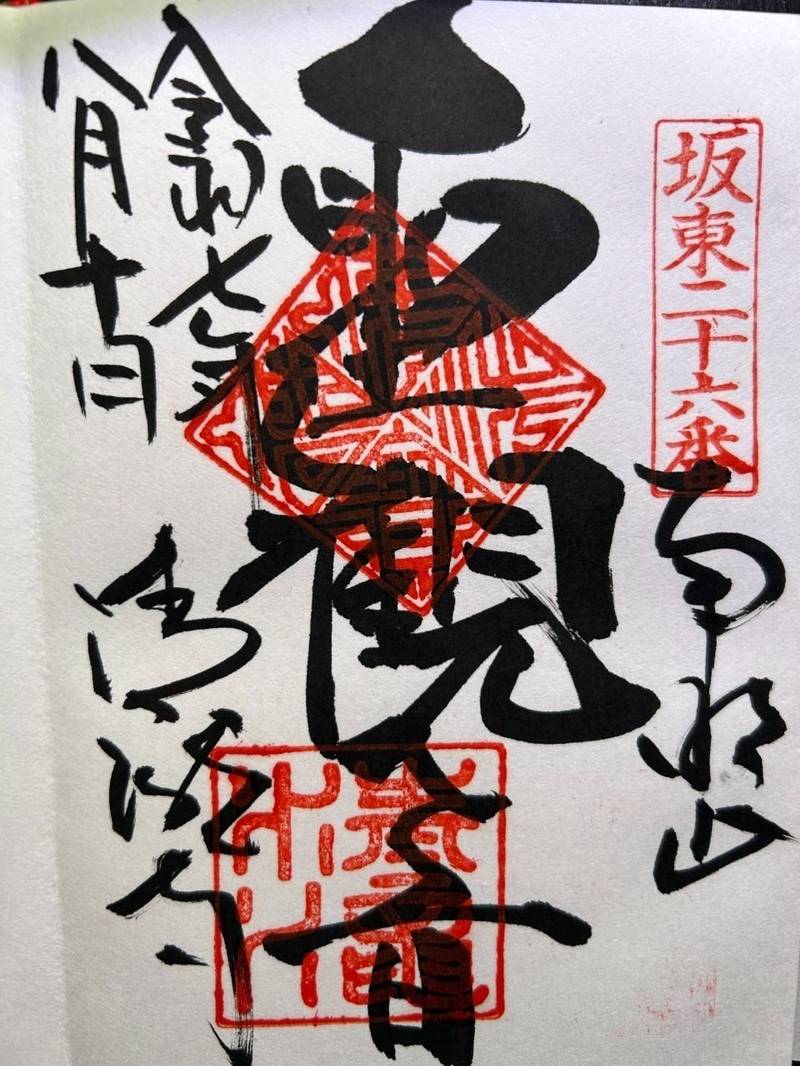 坂東二十六番
南明山
聖観音
令和七年
八月十日
清瀧寺